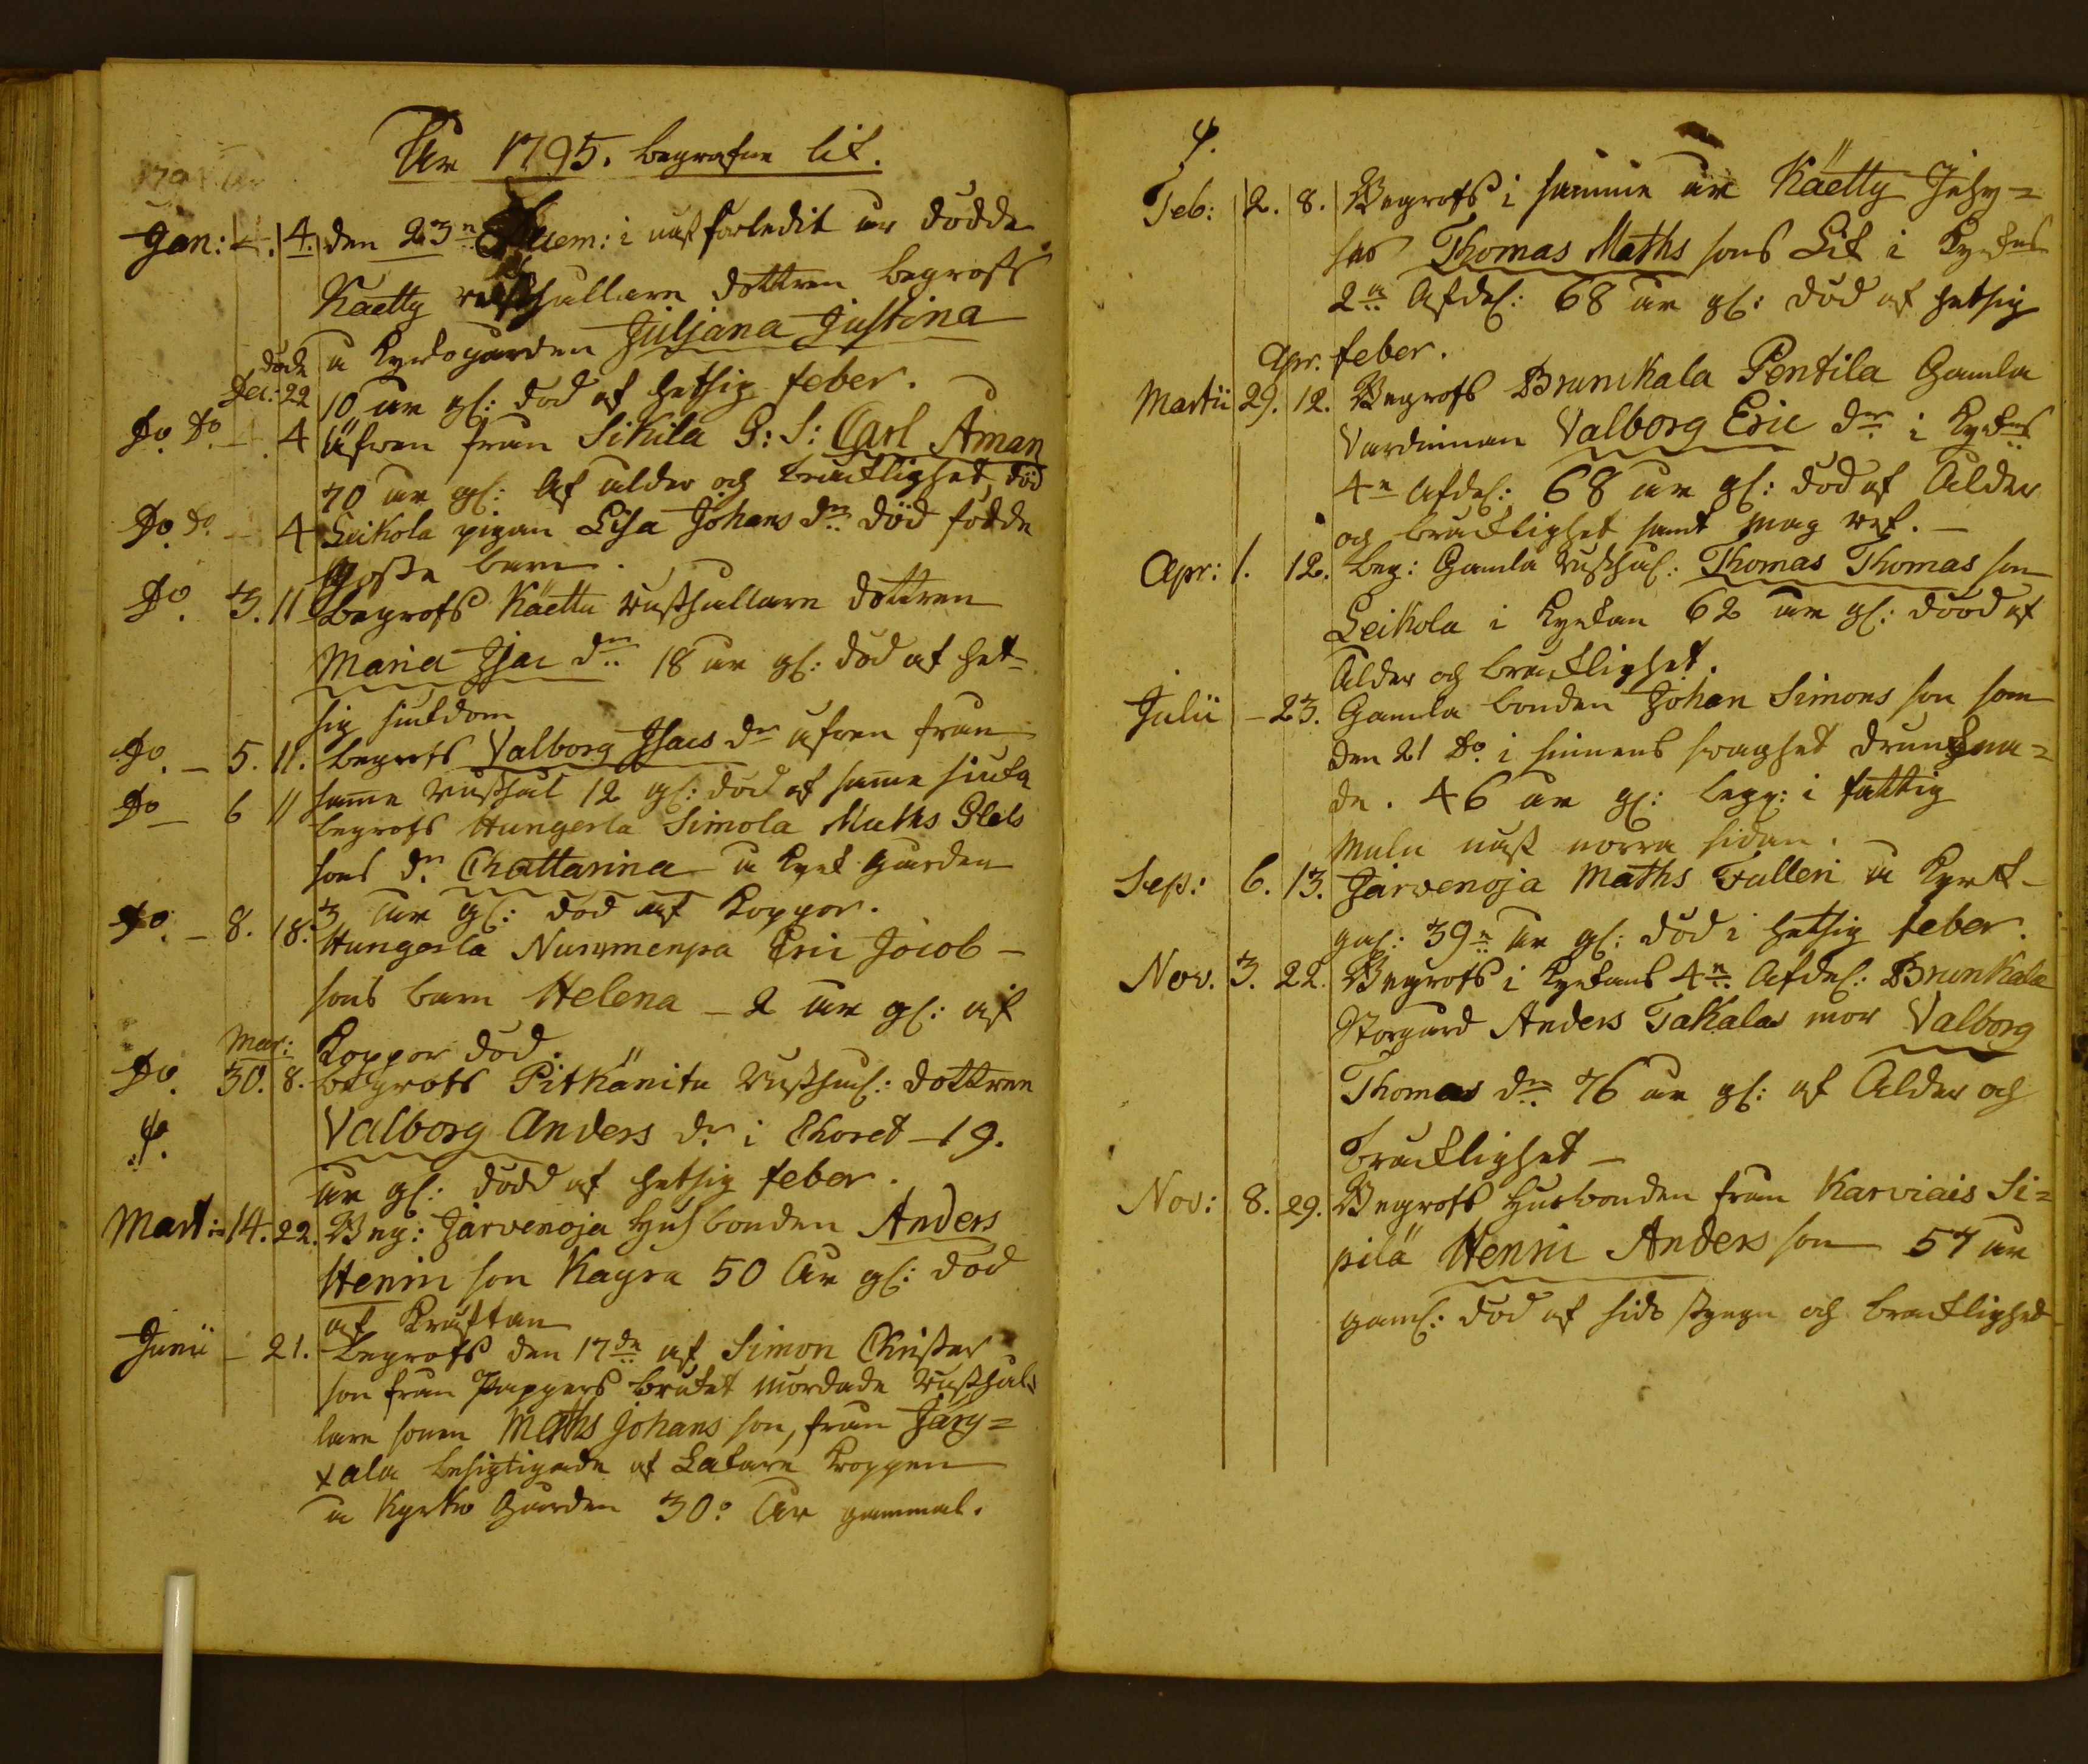 År 1795. begrafne lik.
Jan: 4. den 23n Decem: i näst förledit år dödde
Käetty rusthållare dottren begrofs
å kyrkogården Juljana Justina
döde Dec: 22 10 år gl: död af hetsig feber.
Do Do 4 Äfven från Sikila G: S: Carl Aman
70 år gl: Af ålder och bräcklighet död
Do Do 4 Leikola pigan Lisa Johans dr död födde
gosse barn.
Do. 3. 11 Begrofs Käettu Rusthållare dottren
Maria Isac dr 18 år gl: död af het-
sig siukdom
Do. 5. 11. Begrofs Valborg Isacs dr äfven från
samme Rusthål 12 gl: död af samme siuka
Do 6 11 begrofs Hungerla Simola Maths
sons dr Chattarina å kyrk gården
3 år gl: död af koppor.
Do. 8. 18. Hungerla Nummenpä Eric Jacob-
sons barn Helena 2 år gl: af
koppor död.
Mar:
Do. 30. 8. begrofs Pitkänitu Rusthål: dottren
Valborg Anders dr i Choret 19.
år gl: dödd af hetsig feber.
Mart: 14. 22. Beg: Järvenoja Husbonden Anders
Henric son Kayra 50 År gl: död
af kräftan
Junii 21. Begrofs den 17de af Simon Christer
son från Pappers bruket mördade Rusthål
lare sonen Maths Johans son, från Järy=
xälä besigtigade af Läkare kroppen
å Kyrko Gården 30: År gammal.
Feb: 2. 8. Begrofs i samme år Käetty
Thomas Maths sons Lik i kyrkns
2a Afdel: 68 år gl: död af hetsig
feber.
Apr.
Martii 29. 12. Begrofs Brunkala Pentila Gamla
Värdinnan Valborg Eric dr i kyrkns
4n Afdel: 68 år gl: död af Ålder
och bräcklighet samt mag ref.
Apr: 1. 12. beg: Gamla Rusthål: Thomas Thomas son
Leikola i kyrkan 62 år gl: död af
Ålder och bräcklighet.
Julii 23. Gamla bonden Johan Simons son som
den 21 Do i sinnens svaghet drunckna=
de. 46 år gl: lagg: i fattig
mula näst norra sidan.
Sep: 6. 13. Järvenoja Maths Fulleri å kyrk-
går: 39n år gl: död i hetsig feber.
Nov. 3. 22. Begrofs i kyrkans 4n Afdel: Brunkala
Storgård Anders Takalas mor Valborg
Thomas dr 76 år gl: af Ålder och
bräcklighet
Nov: 8. 29. Begrofs Husbonden från Karviais Si=
pilä Henric Anders son 57 år
gaml: död af sido stygn och bräcklighet